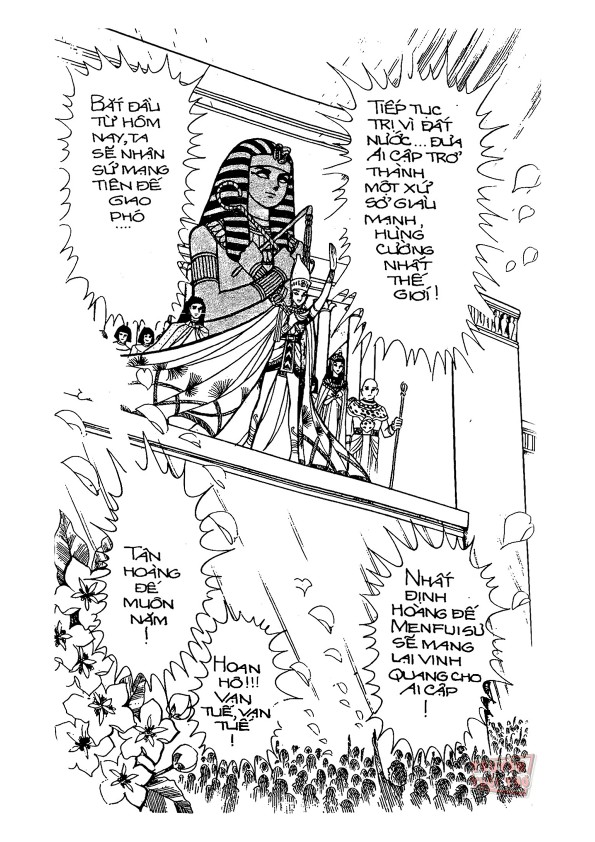 BẮT ĐẦU
TỪ HÔM
NAY, TA
SẼ NHẬN
SỨ MẠNG
TIÊN ĐẾ
GIAO
PHÓ
....
TIẾP TỤC
TRỊ VÌ ĐẤT
NƯỚC... ĐƯA
AI CẬP TRỞ
THÀNH
MỘT XỨ
SỞ GIÀU
MẠNH,
HÙNG
CƯỜNG
NHẤT
THẾ
GIỚI!
TÂN
HOÀNG
ĐẾ
MUÔN
NĂM
!
HOAN
HÔ!!!
VẠN
TUẾ, VẠN
TUẾ
!
NHẤT
ĐỊNH
HOÀNG ĐẾ
MENFUISƯ
SẼ MANG
LẠI VINH
QUANG CHO
AI CẬP
!